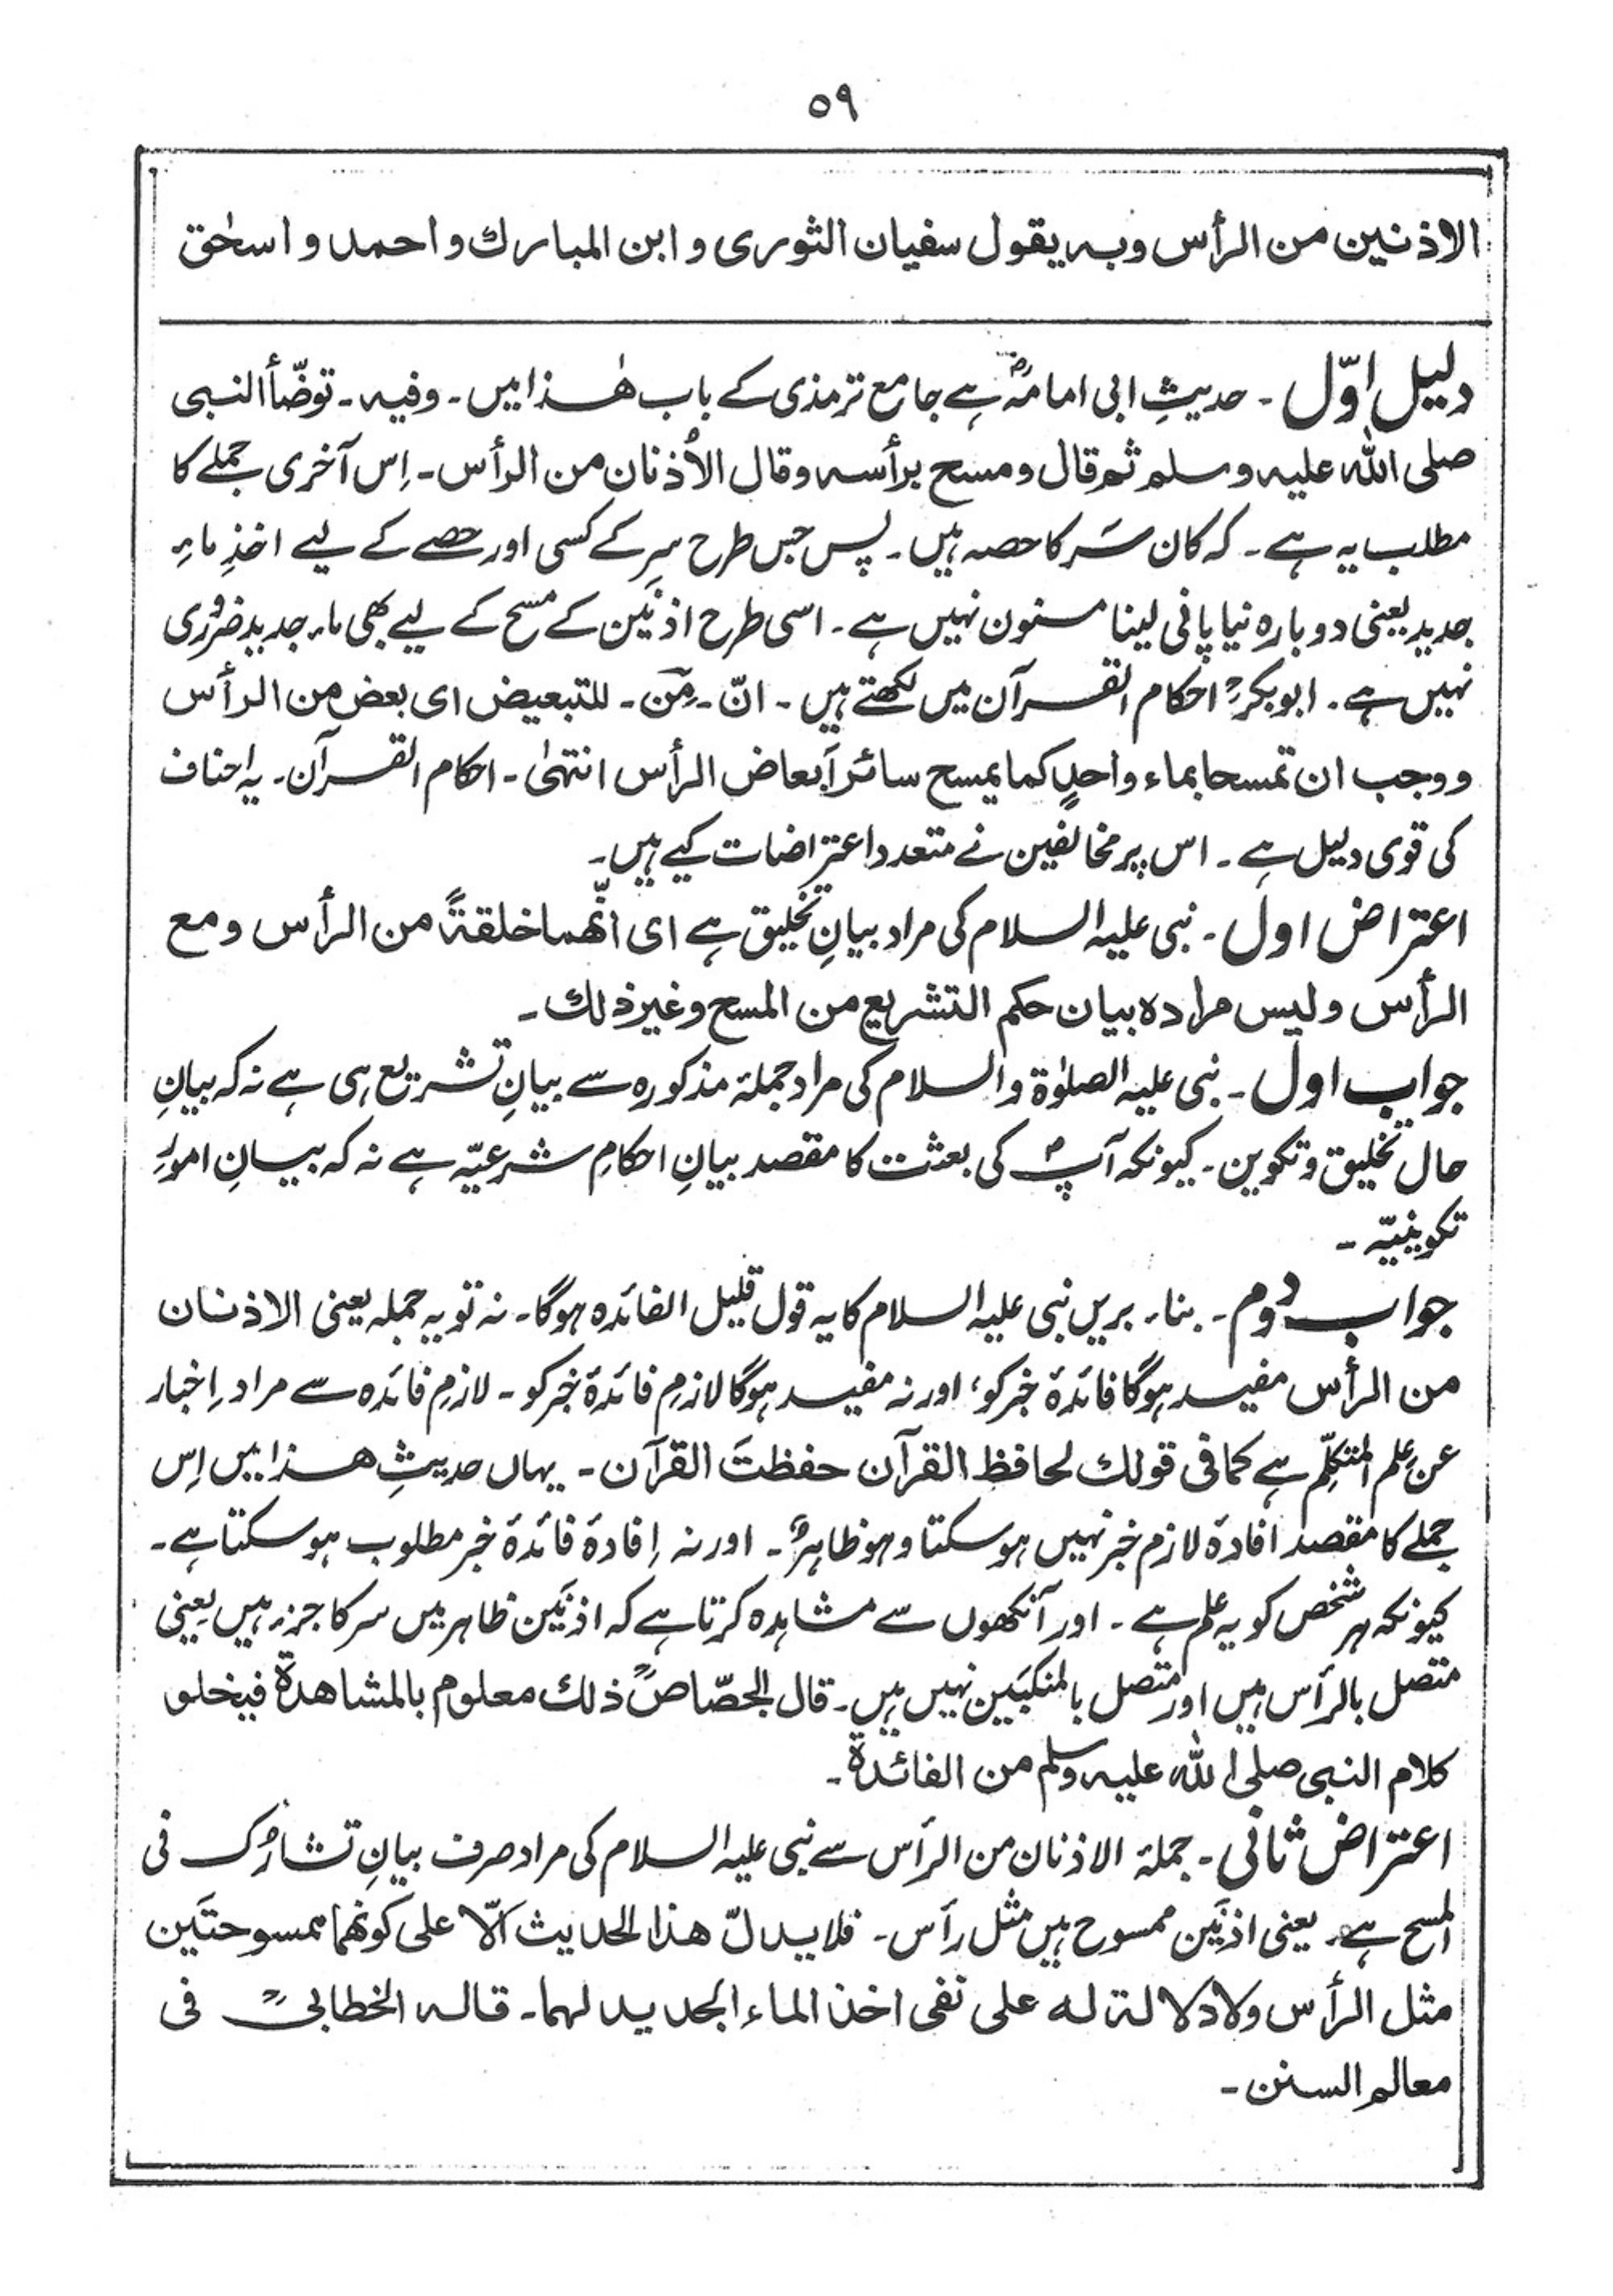 ۵۹
الاذنین من الرأس وبہ یقول سفیان الثوری و ابن المبارك و احمد و اسحٰق
دلیل اوّل ۔ حدیثِ ابی امامہؓ ہے جامع ترمذی کے باب ھٰذا میں ۔ وفیہ ۔ توضّأ النبی
صلی اللہ علیہ وسلم ثم قال ومسح برأسہ وقال الاُذنان من الرأس ۔ اِس آخری جملے کا
مطلب یہ ہے ۔ کہ کان سَر کا حصہ ہیں ۔ پس جس طرح سِر کے کسی اور حصے کے لیے اخذِ ماءِ
جدید یعنی دوبارہ نیا پانی لینا مسنون نہیں ہے ۔ اسی طرح اذنَین کے مسح کے لیے بھی ماء جدید ضروری
نہیں ہے ۔ ابوبکرؒ احکام القرآن میں لکھتے ہیں ۔ انّ ۔ مِن ۔ للتبعیض ای بعض من الرأس
ووجب ان تمسحا بماء واحدٍ کما یمسح سائر اَبعاض الرأس انتہیٰ ۔ احکام القرآن ۔ یہ احناف
کی قوی دلیل ہے ۔ اس پر مخالفین نے متعدد اعتراضات کیے ہیں ۔
اعتراض اول ۔ نبی علیہ السلام کی مراد بیانِ تخلیق ہے ای انّھما خلقۃً من الرأس ومع
الرأس ولیس مرادہ بیان حکم التشریع من المسح وغیر ذلك ۔
جواب اول ۔ نبی علیہ الصلوٰۃ والسلام کی مراد جملۂ مذکورہ سے بیانِ تشریع ہی ہے نہ کہ بیانِ
حال تخلیق وتکوین ۔ کیونکہ آپؐ کی بعثت کا مقصد بیانِ احکامِ شرعیّہ ہے نہ کہ بیانِ امورِ
تکوینیّہ ۔
جواب دوم ۔ بناء بریں نبی علیہ السلام کا یہ قول قلیل الفائدہ ہوگا ۔ نہ تو یہ جملہ یعنی الاذنان
من الرأس مفید ہوگا فائدۂ خبر کو ، اور نہ مفید ہوگا لازمِ فائدۂ خبر کو ۔ لازمِ فائدہ سے مراد اِخبار
عن علم المتکلّم ہے کما فی قولك لحافظ القرآن حفظتَ القرآن ۔ یہاں حدیثِ ھذا میں اِس
جملے کا مقصد افادۂ لازم خبر نہیں ہوسکتا وہو ظاہرٌ ۔ اور نہ اِفادۂ فائدۂ خبر مطلوب ہوسکتا ہے ۔
کیونکہ ہر شخص کو یہ علم ہے ۔ اور آنکھوں سے مشاہدہ کرتا ہے کہ اذنَین ظاہر میں سر کا جزء ہیں یعنی
متصل بالرأس ہیں اور متصل بالمنکبَین نہیں ہیں ۔ قال الجصّاصؒ ذلك معلوم بالمشاھدۃ فیخلو
کلام النبی صلی اللہ علیہ وسلم من الفائدۃ ۔
اعتراض ثانی ۔ جملۂ الاذنان من الرأس سے نبی علیہ السلام کی مراد صرف بیانِ تشارُک فی
المسح ہے ۔ یعنی اذنَین ممسوح ہیں مثل رأس ۔ فلا یدلّ ھذا الحدیث الّا علی کونھما ممسوحتَین
مثل الرأس ولا دلالۃ لہ علی نفی اخذ الماء الجدید لھما ۔ قالہ الخطابیؒ فی
معالم السنن ۔